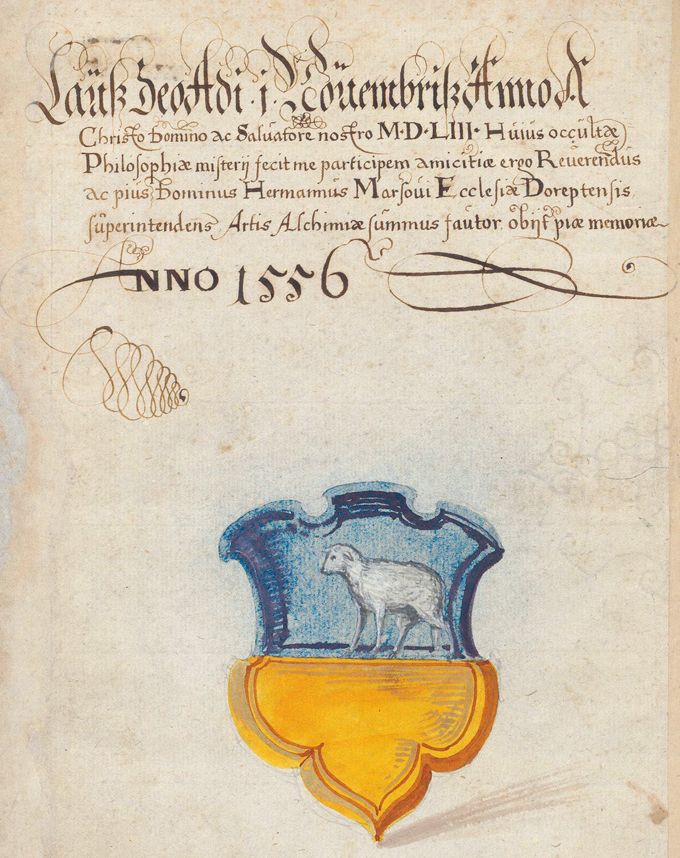 Laŭs Deo Adi · j · Nouembris Anno A
Christo Domino ac Salvatore nostro M·D·LIII· Hŭiŭs occŭltæ
Philosophiæ misterij fecit me participem amicitiæ ergo Reŭerendŭs
ac piŭs Dominus Hermannus Marsoŭi Ecclesiæ Doreptensis
sŭperintendens Artis Alchimiæ sŭmmŭs faŭtor obijt piæ memoriæ
ANNO 1556